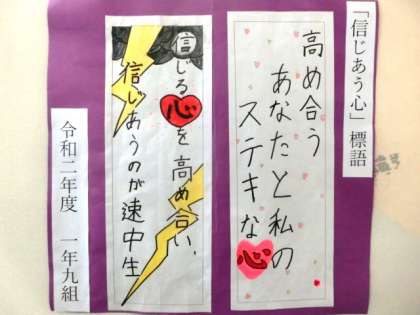 「信じあう心」標語
高め合う
あなたと私の
ステキな心
信じる心を高め合い、
信じあうのが速中生
令和二年度 一年九組